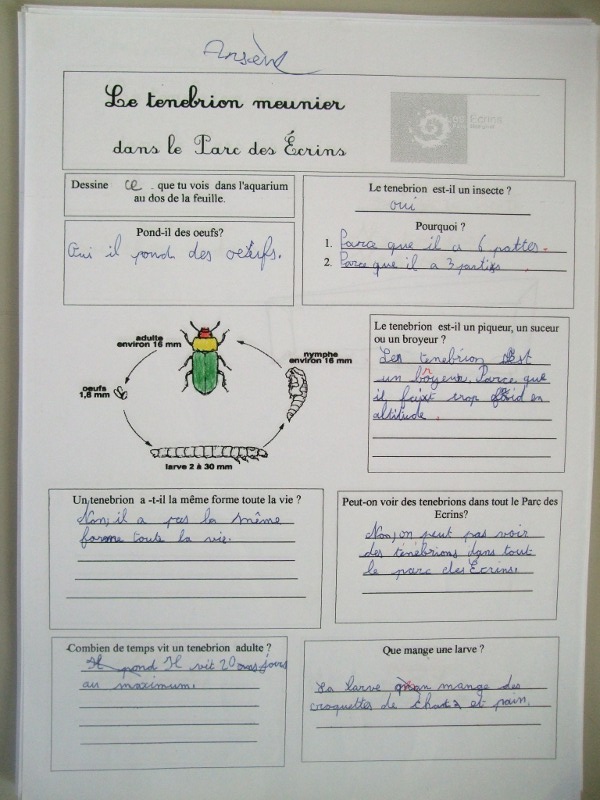 Arsène
Le tenebrion meunier
dans le Parc des Écrins
Écrins
Dessine ce . que tu vois dans l'aquarium
au dos de la feuille.
Le tenebrion est-il un insecte ?
oui
Pourquoi ?
1. Parce que il a 6 pattes.
2. Parce que il a 3 parties .
Pond-il des oeufs?
Oui il pond des oeufs.
adulte
environ 16 mm
nymphe
environ 16 mm
oeufs
1,8 mm
larve 2 à 30 mm
Le tenebrion est-il un piqueur, un suceur
ou un broyeur ?
Les tenebrion est
un broyeur. Parce que
il fait trop froid en
altitude.
Un tenebrion a -t-il la même forme toute la vie ?
Non, il a pas la même
forme toute la vie.
Peut-on voir des tenebrions dans tout le Parc des
Ecrins?
Non, on peut pas voir
des ténébrions dans tout
le parc des Ecrins.
Combien de temps vit un tenebrion adulte ?
Il pond Il vit 20 jours
au maximum.
Que mange une larve ?
La larve mange des
croquettes de chats et pain.